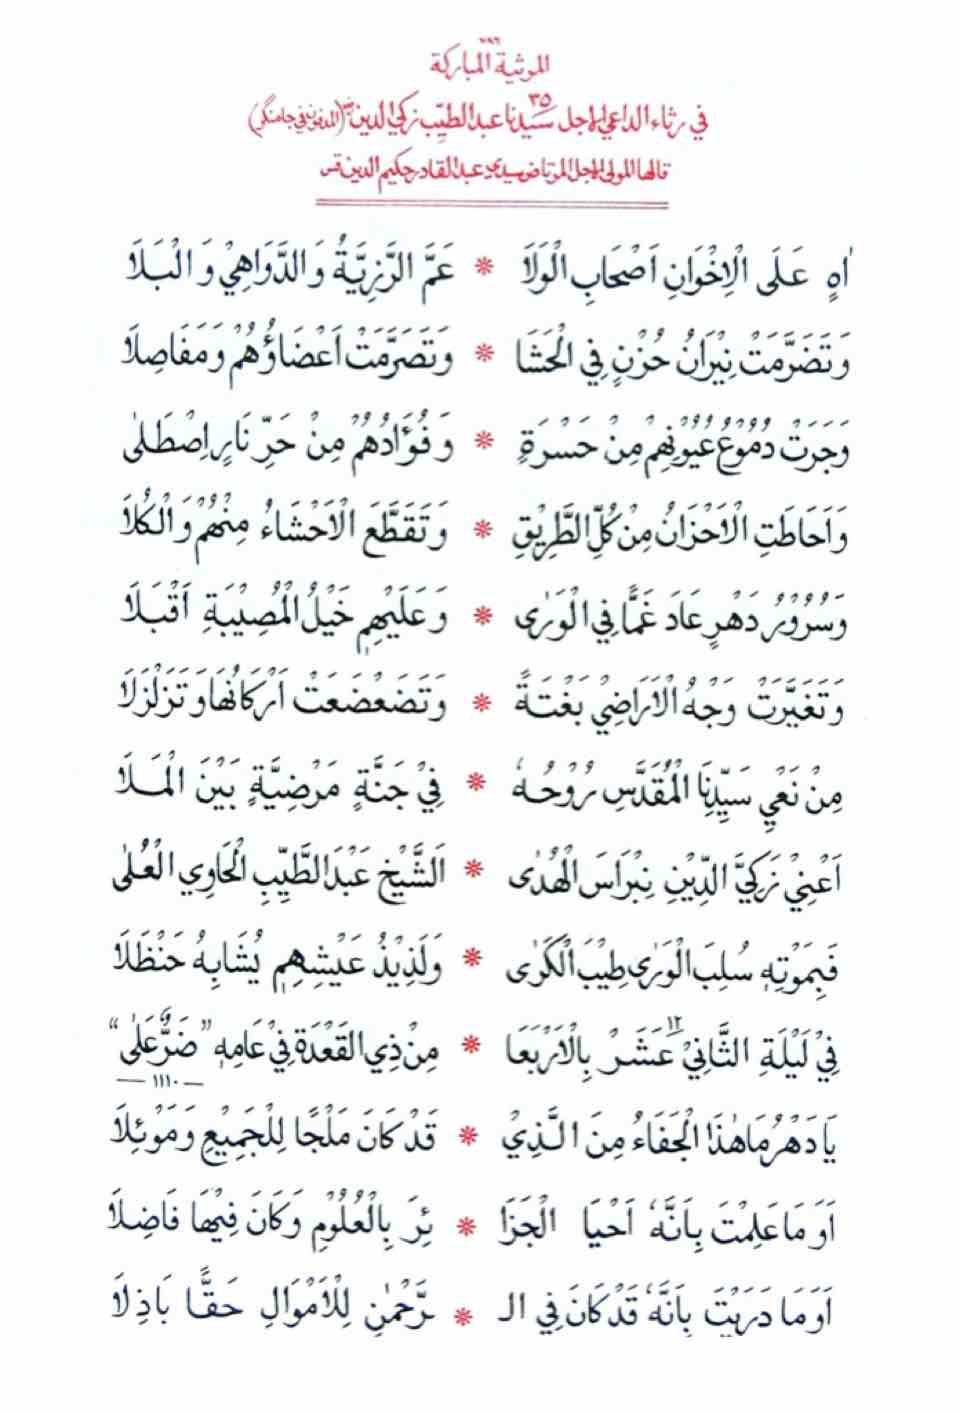 ٧٨٦
المرثية المباركة
في رثاء الداعي الاجل ٣٥ سيدنا عبد الطيّب زكي الدين رض (المدفون في جامنگر)
قالها المولى الاجل المرتاض سيدي عبد القادر حكيم الدين قس
اٰهٍ عَلَى الْاِخْوَانِ اَصْحَابِ الْوَلَا * عَمَّ الرَّزِيَّةُ وَالدَّوَاهِيْ وَالْبَلَا
وَتَضَرَّمَتْ نِيْرَانُ حُزْنٍ فِي الْحَشَا * وَتَصَرَّمَتْ اَعْضَاؤُهُمْ وَمَفَاصِلَا
وَجَرَتْ دُمُوْعُ عُيُوْنِهِمْ مِنْ حَسْرَةٍ * وَفُؤَادُهُمْ مِنْ حَرِّ نَارٍ اِصْطَلٰى
وَاَحَاطَتِ الْاَحْزَانُ مِنْ كُلِّ الطَّرِيْقِ * وَتَقَطَّعَ الْاَحْشَاءُ مِنْهُمْ وَالْكُلَا
وَسُرُوْرُ دَهْرٍ عَادَ غَمًّا فِي الْوَرٰى * وَعَلَيْهِمِ خَيْلُ الْمُصِيْبَةِ اَقْبَلَا
وَتَغَيَّرَتْ وَجْهُ الْاَرَاضِيْ بَغْتَةً * وَتَضَعْضَعَتْ اَرْكَانُهَا وَتَزَلْزَلَا
مِنْ نَعْيِ سَيِّدِنَا الْمُقَدَّسِ رُوْحُهٗ * فِيْ جَنَّةٍ مَرْضِيَّةٍ بَيْنَ الْمَلَا
اَعْنِيْ زَكِيَّ الدِّيْنِ نِبْرَاسَ الْهُدٰى * اَلشَّيْخَ عَبْدَ الطَّيِّبِ الْحَاوِي الْعُلٰى
فَبِمَوْتِهٖ سُلِبَ الْوَرٰى طِيْبَ الْكَرٰى * وَلَذِيْذُ عَيْشِهِمِ يُشَابِهُ حَنْظَلَا
فِيْ لَيْلَةِ الثَّانِيْ ١٢ عَشَرْ بِالْاَرْبَعَا * مِنْ ذِي الْقَعْدَةِ فِيْ عَامِهٖ "ضَرٌّ عَلٰى"
— ١١١٠ —
يَا دَهْرُ مَا هٰذَا الْجَفَاءُ مِنَ الَّذِيْ * قَدْ كَانَ مَلْجًا لِلْجَمِيْعِ وَمَوْئِلَا
اَوَ مَا عَلِمْتَ بِاَنَّهٗ اَحْيَا الْجَزَا * ئِرَ بِالْعُلُوْمِ وَكَانَ فِيْهَا فَاضِلَا
اَوَ مَا دَرَيْتَ بِاَنَّهٗ قَدْ كَانَ فِي الـ * ـرَّحْمٰنِ لِلْاَمْوَالِ حَقًّا بَاذِلَا